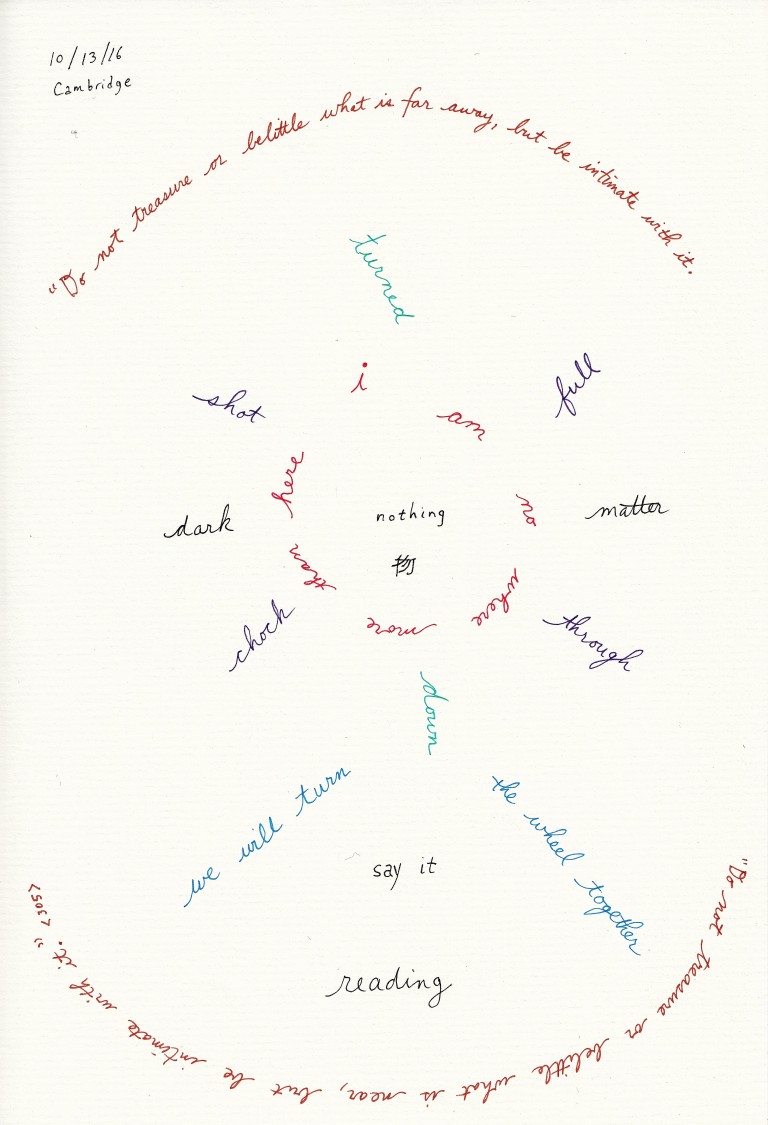 10/13/16
Cambridge
"Do not treasure or belittle what is far away, but be intimate with it.
turned
shot
full
i
am
no
where
more
than
here
dark
nothing
物
matter
chock
through
down
we will turn
the wheel together
say it
reading
"Do not treasure or belittle what is near, but be intimate with it." <305>